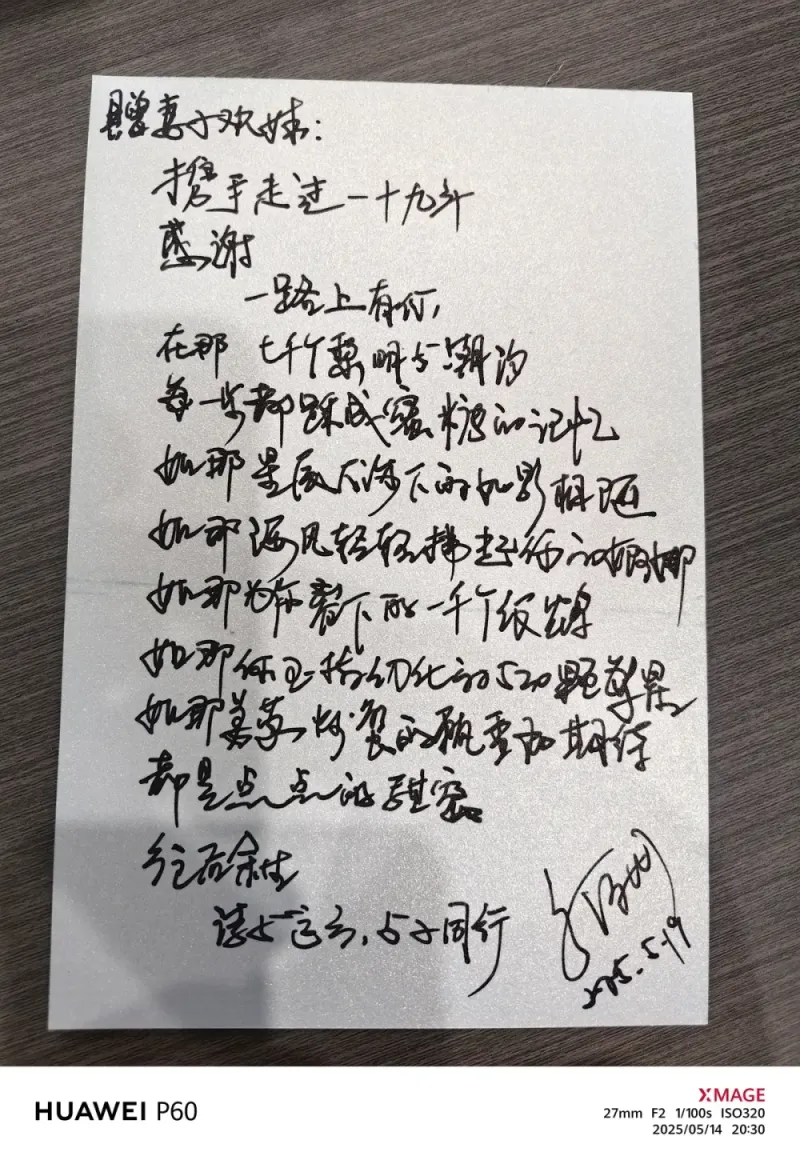 赠妻子欢妹:
携手走过一十九年
感谢
一路上有你,
在那 七千个黎明与潮汐
每一步都踩成蜜糖的记忆
如那星辰下的如影相随
如那海风轻轻拂起你的婀娜
如那为你下的一千个纸
如那你玉指幻化的520颗苹果
如那的期待
都是点点的甜蜜
往后余生
请与同行
2025.5.19
HUAWEI P60
XMAGE
27mm F2 1/100s ISO320
2025/05/14 20:30